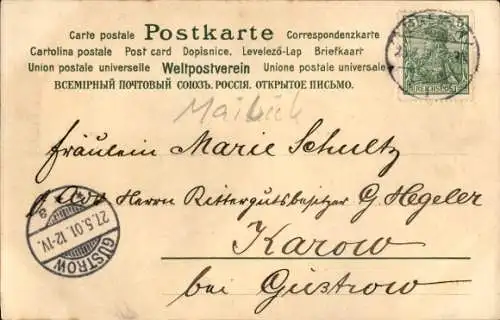 Carte postale Postkarte Correspondenzkarte
Cartolina postale Post card Dopisnice. Levelező-Lap Briefkaart
Union postale universelle Weltpostverein Unione postale universale
ВСЕМІРНЫЙ ПОЧТОВЫЙ СОЮЗЪ. РОССІЯ. ОТКРЫТОЕ ПИСЬМО.
REICHSPOST
Fräulein Marie Schultz
Adr. Herrn Rittergutsbesitzer G. Hegeler
Karow
bei Güstrow
27.5.01.12-1V.
GÜSTROW